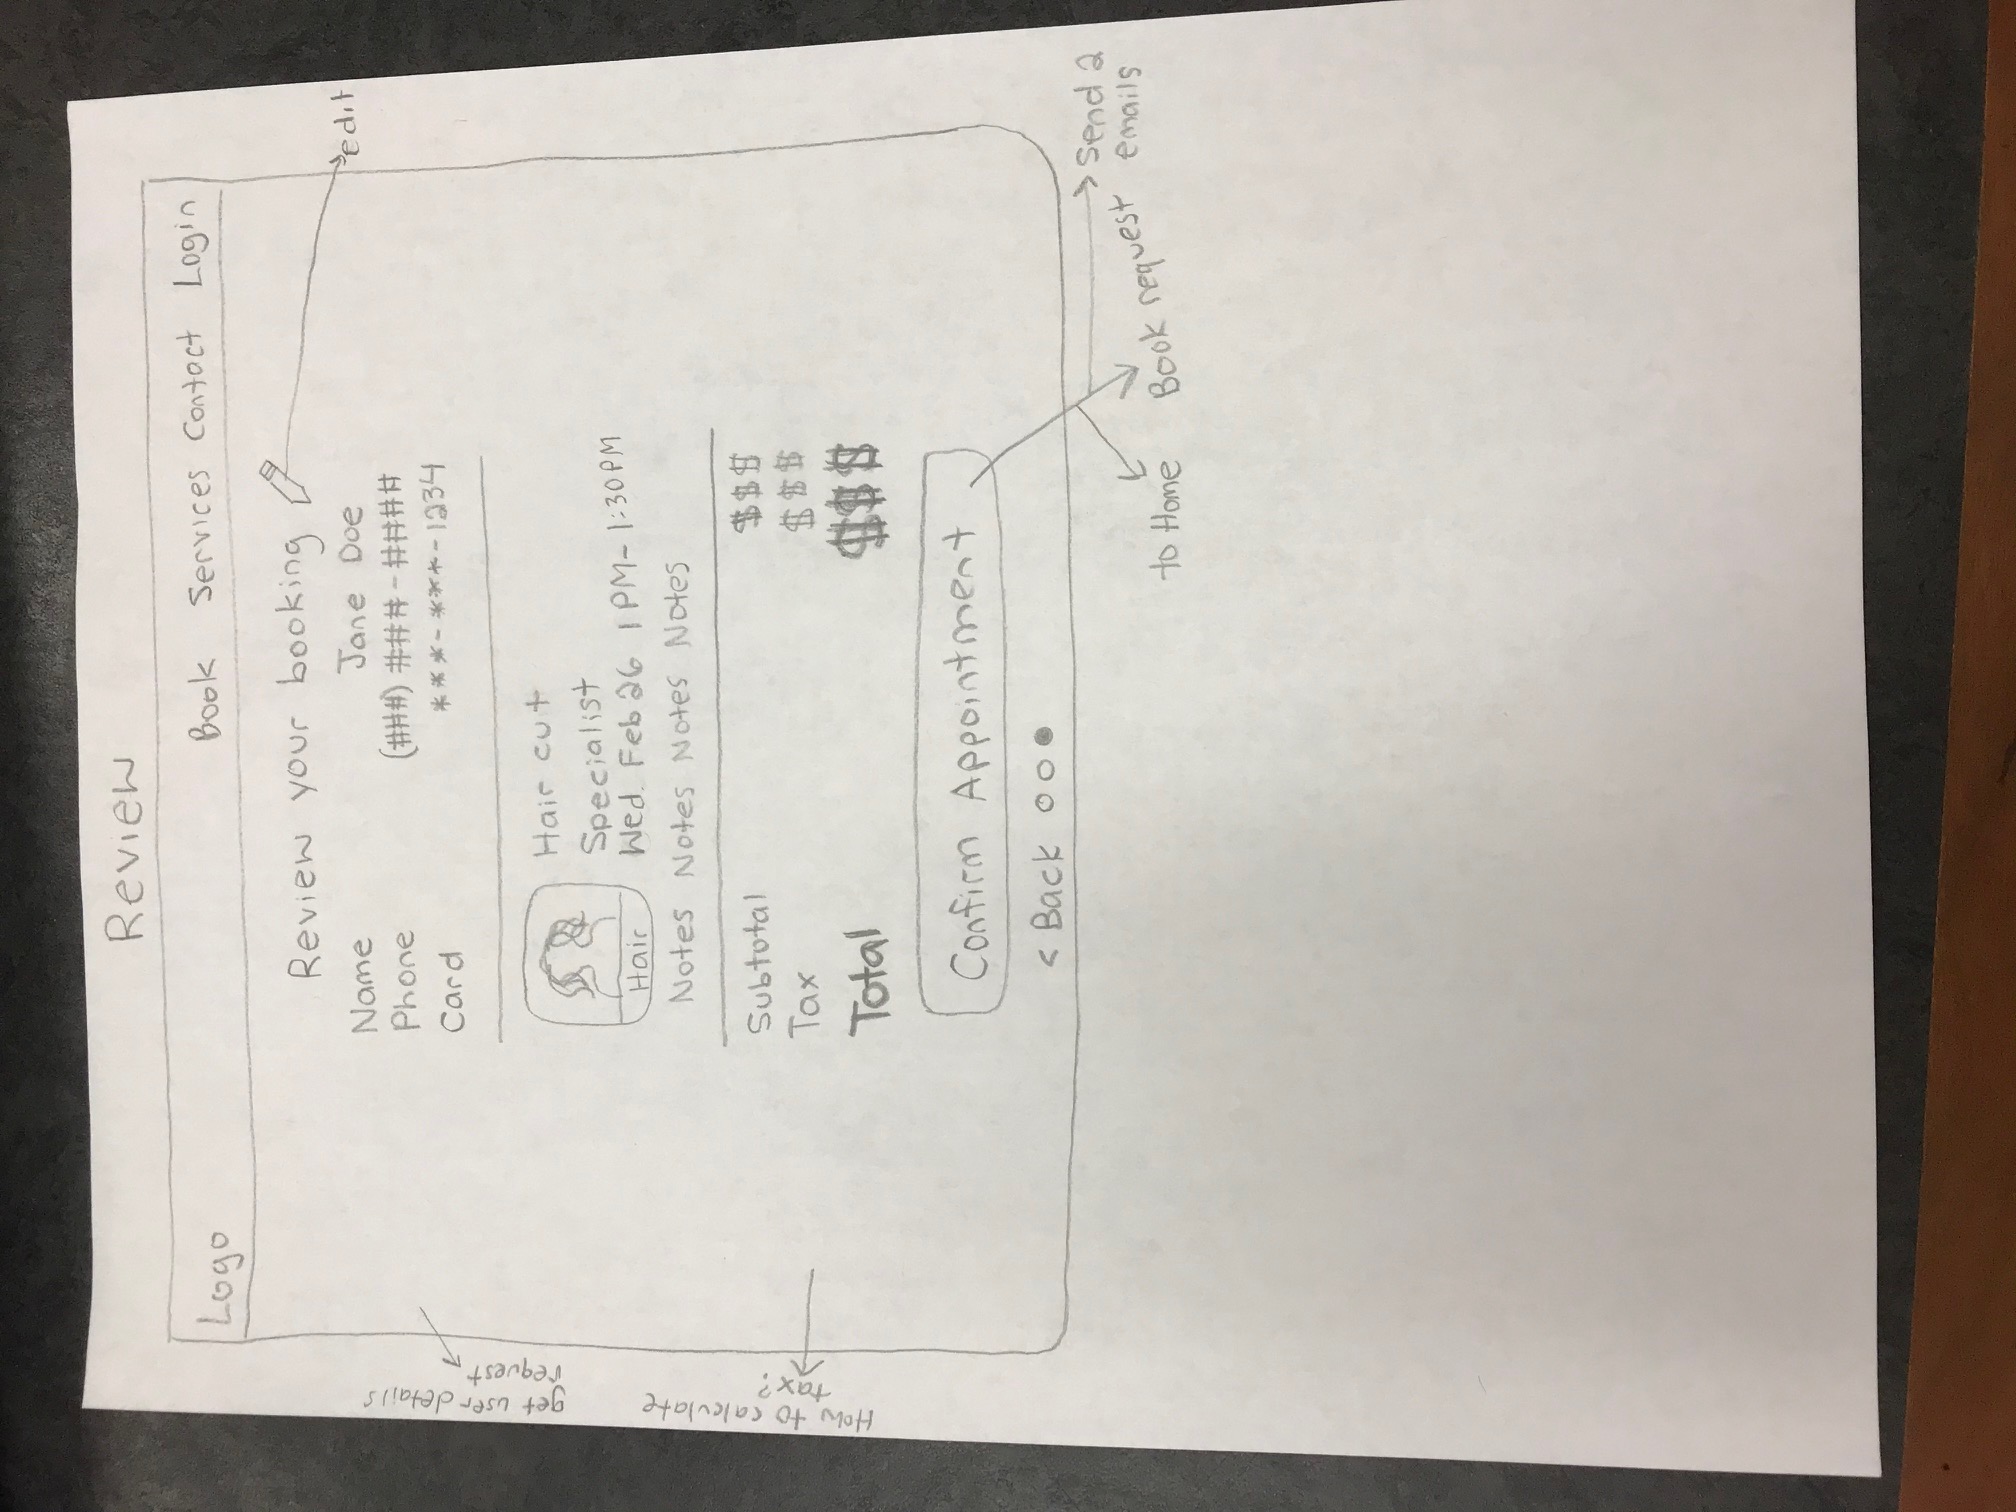 Review
Logo Book Services Contact Login
Review your booking
edit
Name Jane Doe
Phone (###) ###-####
Card ***-***-1234
get user details
request
Hair cut
Specialist
Wed. Feb 26 1 PM- 1:30PM
Hair
Notes Notes Notes Notes
How to calculate
tax?
Subtotal $$$
Tax $$$
Total $$$
Confirm Appointment
< Back
to Home
Book request
Send 2
emails